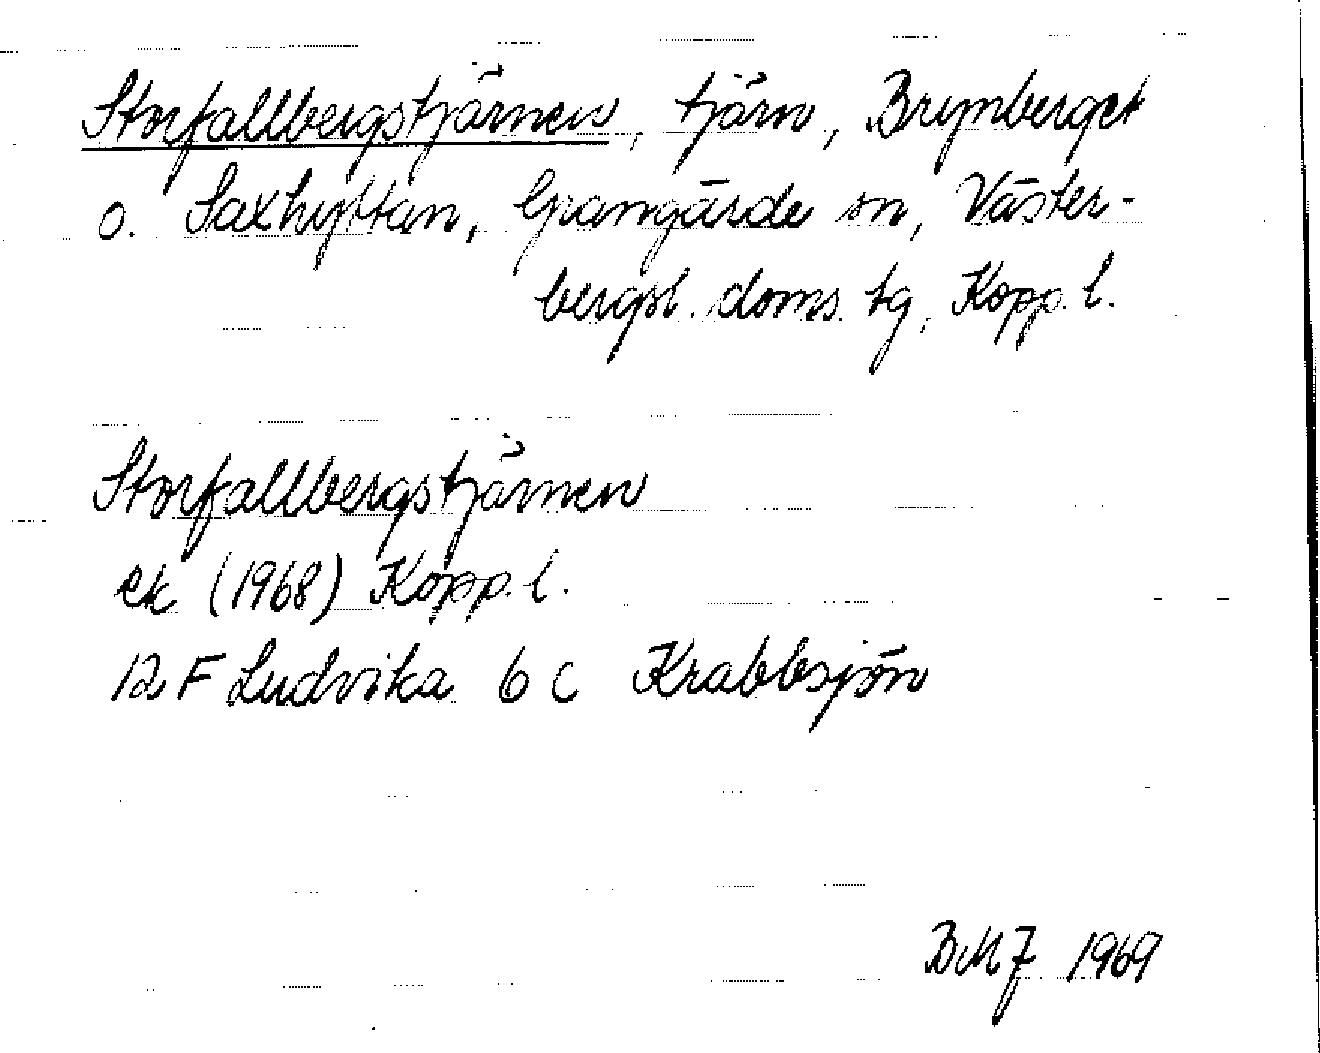 Storfallbergstjärnen, tjärn, Brynberget
o. Saxhyttan, Grangärde sn, Väster-
bergsl. doms. tg, Kopp. l.
Storfallbergstjärnen
ek (1968) Kopp. l.
12 F Ludvika 6 c Krabbsjön
BMJ 1969